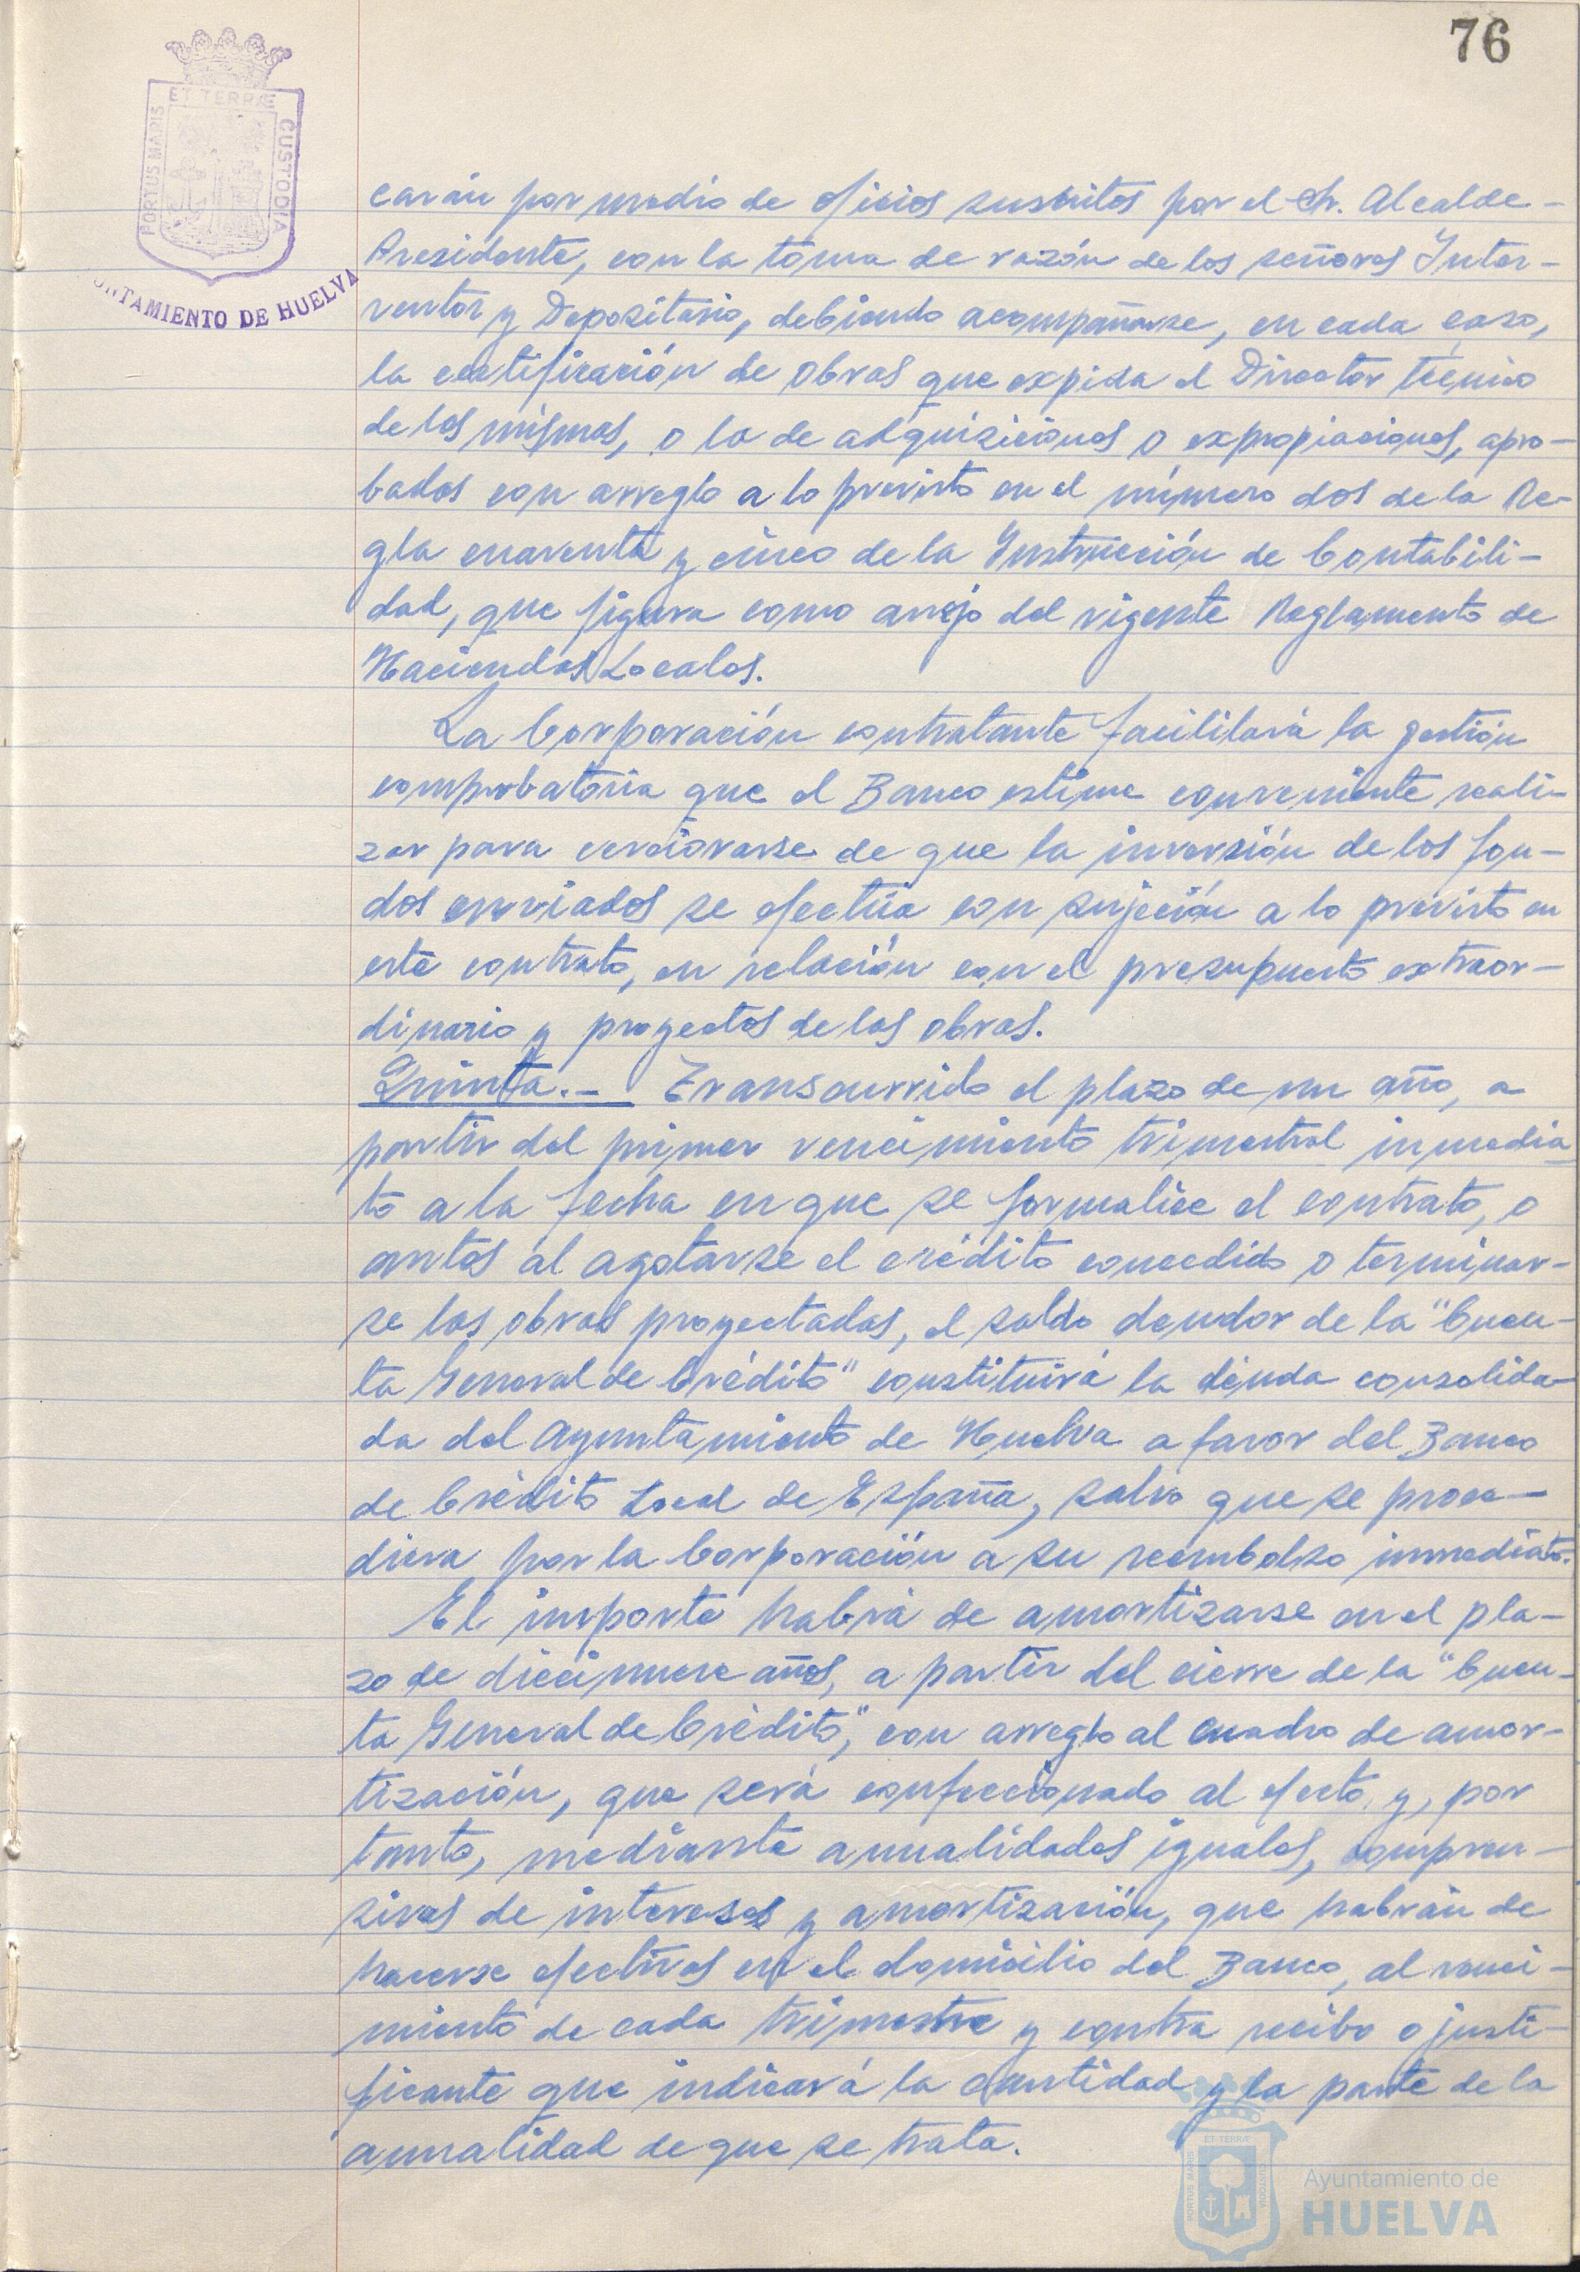 76
ET TERRÆ
PORTUS MARIS
CUSTODIA
UNTAMIENTO DE HUELVA
carán por medio de oficios suscritos por el Sr. Alcalde-
Presidente, con la toma de razón de los señores Inter-
ventor y Depositario, debiendo acompañarse, en cada caso,
la certificación de obras que expida el Director técnico
de las mismas, o la de adquisiciones o expropiaciones, apro-
badas con arreglo a lo previsto en el número dos de la Re-
gla cuarenta y cinco de la Instrucción de Contabili-
dad, que figura como anejo del vigente Reglamento de
Haciendas Locales.
La Corporación contratante facilitará la gestión
comprobatoria que el Banco estime conveniente reali-
zar para cerciorarse de que la inversión de los fon-
dos enviados se efectúa con sujeción a lo previsto en
este contrato, en relación con el presupuesto extraor-
dinario y proyectos de las obras.
Quinta.- Transcurrido el plazo de un año, a
partir del primer vencimiento trimestral inmedia-
to a la fecha en que se formalice el contrato, o
antes al agotarse el crédito concedido o terminar-
se las obras proyectadas, el saldo deudor de la "Cuen-
ta General de Crédito" constituirá la deuda consolida-
da del Ayuntamiento de Huelva a favor del Banco
de Crédito Local de España, salvo que se proce-
diera por la Corporación a su reembolso inmediato.
El importe habrá de amortizarse en el pla-
zo de diecinueve años, a partir del cierre de la "Cuen-
ta General de Crédito", con arreglo al cuadro de amor-
tización, que será confeccionado al efecto y, por
tanto, mediante anualidades iguales, compren-
sivas de intereses y amortización, que habrán de
hacerse efectivas en el domicilio del Banco, al venci-
miento de cada trimestre y contra recibo o justi-
ficante que indicará la cantidad y la parte de la
anualidad de que se trata.
ET TERRÆ
PORTUS MARIS
CUSTODIA
Ayuntamiento de
HUELVA